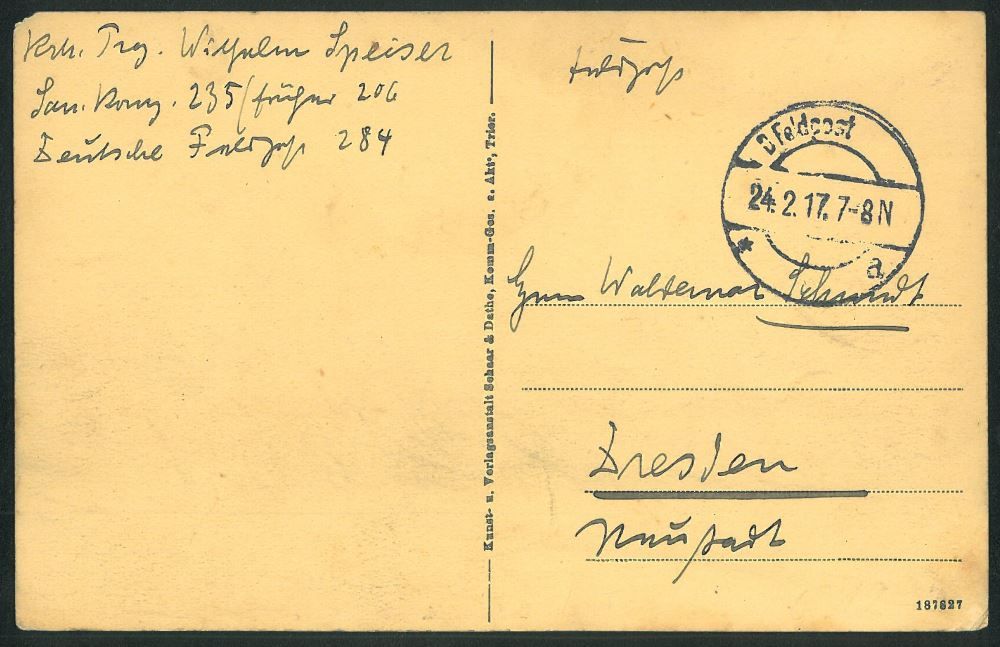 Krk. Trg. Wilhelm Speiser
San. Komp. 235 / früher 206
Deutsche Feldpost 284
Feldpost
D Feldpost
24.2.17. 7-8 N
* a
Herrn Waldemar Schmidt
Dresden
Neustadt
Kunst- u. Verlagsanstalt Schaar & Dathe, Komm-Ges. a. Akt., Trier.
187827